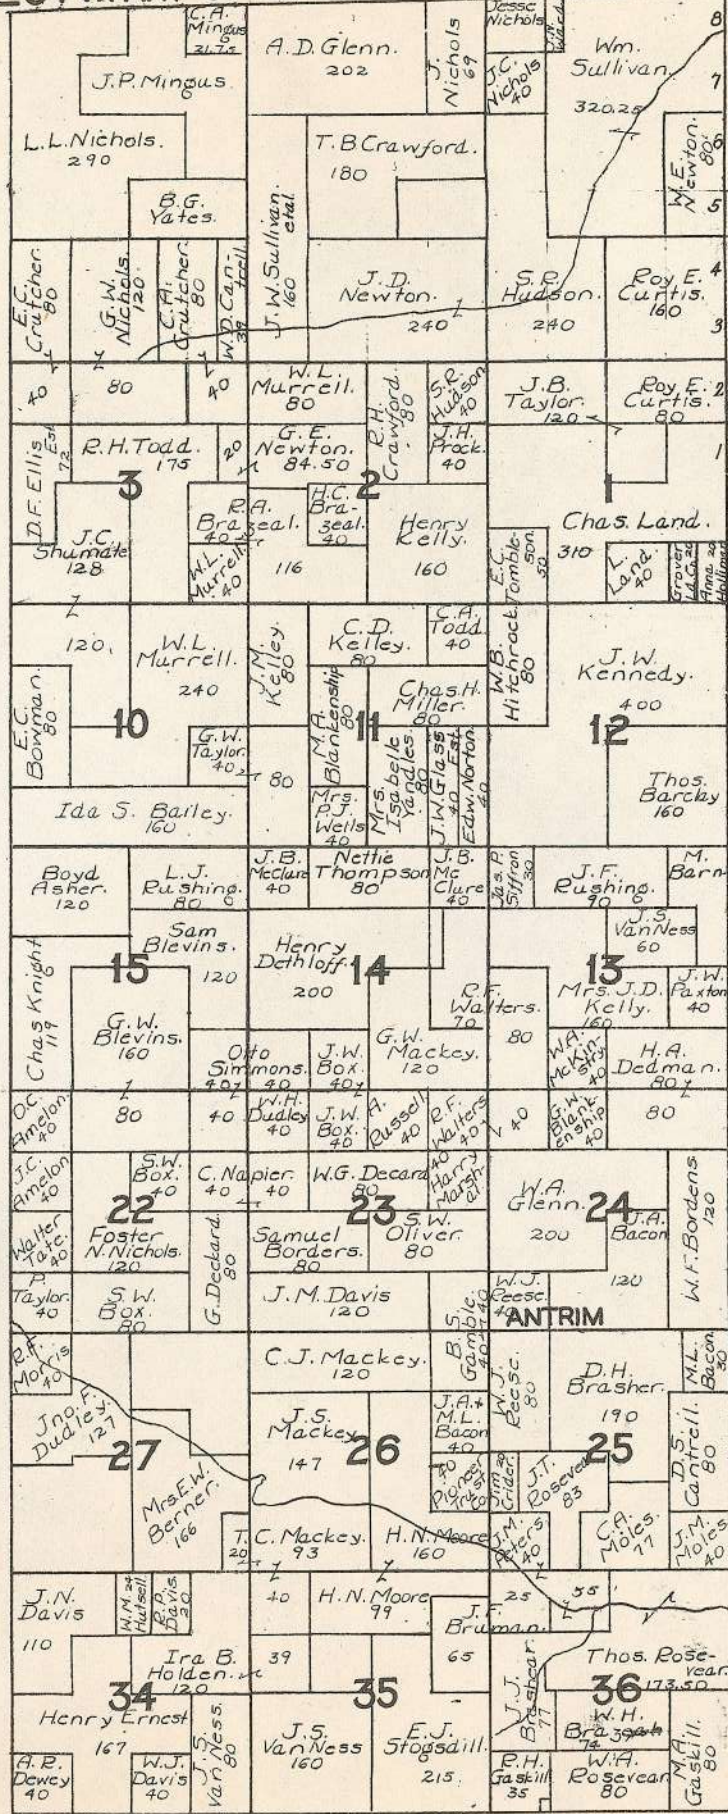 C.A.
Mingus
31.75
J.P. Mingus
L.L. Nichols.
290
B.G.
Yates.
A.D. Glenn.
202
J.
Nichols
69
Jesse
Nichols
J.C.
Nichols
40
Wm.
Sullivan
320.25
8
7
6
5
4
3
2
1
W.E.
Newton.
80
T.B Crawford.
180
J.W. Sullivan.
etal.
160
E.C.
Crutcher.
80
G.W.
Nichols.
120
C.A.
Crutcher.
80
W.D. Can-
trell.
39
J.D.
Newton.
240
S.R.
Hudson.
240
Roy E.
Curtis.
160
40
80
40
W.L.
Murrell.
80
R.H.
Crawford.
80
S.R.
Hudson
40
J.B.
Taylor.
120
Roy E.
Curtis.
80
D.F. Ellis
Est
72
R.H. Todd.
175
20
G.E.
Newton.
84.50
J.H.
Prock.
40
3
2
1
J.C.
Shumate
128
R.A.
Brazeal.
40
116
H.C.
Bra-
zeal.
40
W.L.
Murrell
40
Henry
Kelly.
160
E.C.
Tomble-
son.
50
Chas. Land.
310
L.
Land.
40
Grover
La Co 20
Anna 20
120.
W.L.
Murrell.
240
J.M.
Kelley.
80
C.D.
Kelley.
80
C.A.
Todd.
40
W.B.
Hitchrock.
80
J.W.
Kennedy.
400
E.C.
Bowman.
80
M.A.
Blankenship
80
Chas. H.
Miller.
80
10
11
12
G.W.
Taylor.
40
80
Mrs.
P.J.
Wells
40
Mrs.
Isabelle
Yandles.
80
J.W. Glass
Est.
40
Edw. Norton.
40
Thos.
Barclay
160
Ida S. Bailey.
160
Boyd
Asher.
120
L.J.
Rushing.
80
J.B.
McClure
40
Nettie
Thompson
80
J.B.
Mc
Clure
40
Jas. P.
Siffron
30
J.F.
Rushing.
90
M.
Barn
Sam
Blevins.
120
Henry
Dethloff.
200
J.S.
VanNess
60
15
14
13
Chas Knight
119
G.W.
Blevins.
160
R.F.
Walters.
70
80
Mrs. J.D.
Kelly.
160
J.W.
Paxton
40
Otto
Simmons.
40
40
J.W.
Box.
40
G.W.
Mackey.
120
W.A.
McKin-
stry.
40
H.A.
Dedman.
80
O.C.
Amelon.
40
80
40
W.H.
Dudley
40
J.W.
Box.
40
A.
Russell
40
R.F.
Walters
40
40
G.W.
Blank-
enship
40
80
J.C.
Amelon
40
S.W.
Box.
40
C. Napier.
40
40
W.G. Decard
80
40
Harry
Marsh-
al
W.A.
Glenn.
200
W.F. Bordens
120
22
23
24
Walter
Tate.
40
Foster
N. Nichols.
120
G. Deckard.
80
Samuel
Borders.
80
S.W.
Oliver.
80
J.A.
Bacon
120
P.
Taylor.
40
S.W.
Box.
80
J.M. Davis
120
B.S.
Gamble.
40
40
W.J.
Reese.
40
ANTRIM
R.A.
Morris
40
C.J. Mackey.
120
W.J.
Reese.
80
D.H.
Brasher.
190
M.L.
Bacon.
30
Jno. F.
Dudley.
127
J.S.
Mackey
147
J.A. +
M.L.
Bacon
40
D.S.
Cantrell.
80
27
26
25
40
Pioneer
Trust
Co
Jim 20
Crider.
J.T.
Rosevear
83
Mrs. E.W.
Berner.
166
T. C. Mackey.
20
93
H.N. Moore
160
J.M.
Peters.
40
C.A.
Moles.
77
J.M.
Moles
40
J.N.
Davis
110
W.M. 24
Hutsell
R.P.
Davis.
20
40
H.N. Moore
99
J.F.
Bruman.
65
25
55
Ira B.
Holden.
120
39
Thos. Rose-
vear.
173.50
34
35
36
J.J.
Brashear.
77
Henry Ernest
167
J.S.
VanNess.
80
J.S.
VanNess
160
E.J.
Stogsdill.
215.
W.H.
74
A.R.
Dewey
40
W.J.
Davis
40
R.H.
Gaskill
35
W.A.
Rosevear
80
M.A.
Gaskill.
80